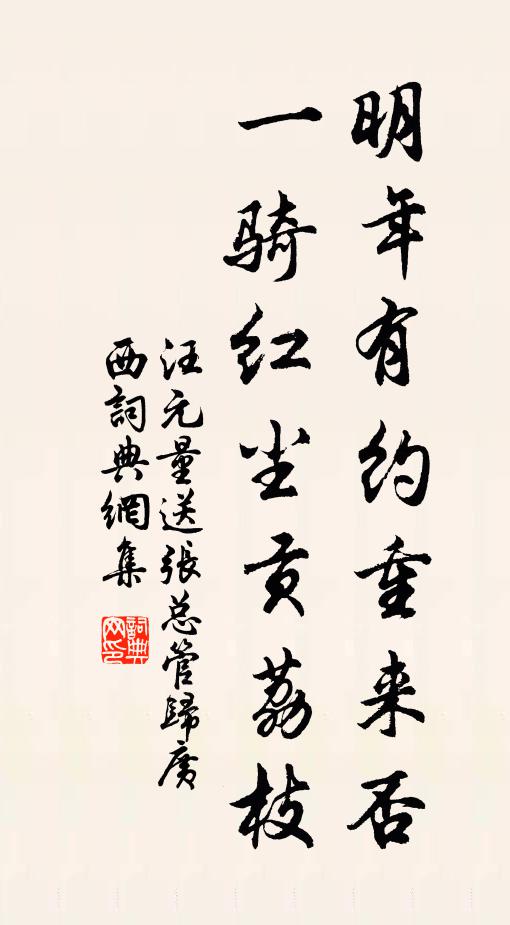 明年有约重来否
一骑红尘贡荔枝
汪元量送張总管歸廣
西詞典網集
詞典
网印